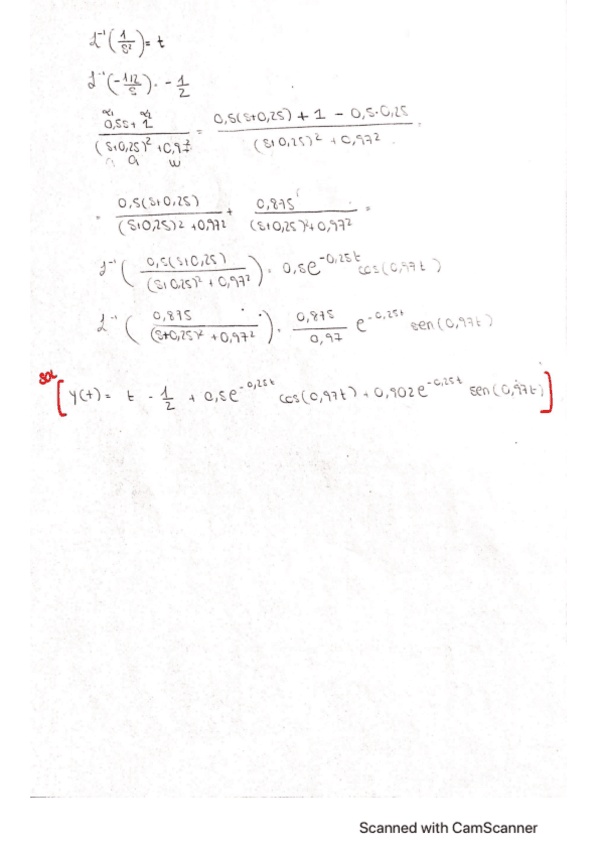 ℒ⁻¹(1/s²) = t
ℒ⁻¹(-1/2/s) = -1/2
α₁ α₂
(0,5s + 1)/((s+0,25)² + 0,97²) = (0,5(s+0,25) + 1 - 0,5·0,25)/((s+0,25)² + 0,97²)
a w
= 0,5(s+0,25)/((s+0,25)² + 0,97²) + 0,875/((s+0,25)² + 0,97²) =
ℒ⁻¹(0,5(s+0,25)/((s+0,25)² + 0,97²)) = 0,5e^(-0,25t) cos(0,97t)
ℒ⁻¹(0,875/((s+0,25)² + 0,97²)) = 0,875/0,97 e^(-0,25t) sen(0,97t)
SOL
[y(t) = t - 1/2 + 0,5e^(-0,25t) cos(0,97t) + 0,902e^(-0,25t) sen(0,97t)]
Scanned with CamScanner